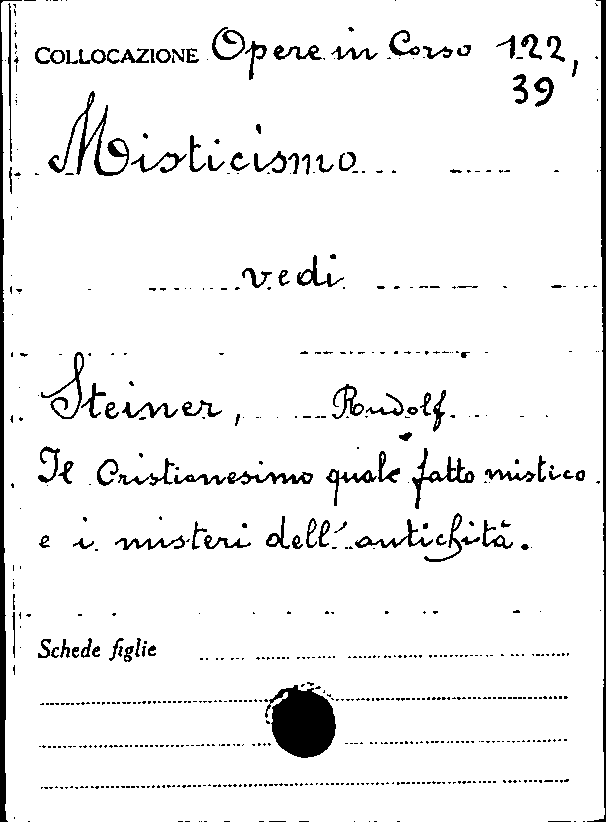 COLLOCAZIONE Opere in Corso 122,
39
Misticismo
vedi
Steiner, Rudolf.
Il Cristianesimo quale fatto mistico
e i misteri dell'antichità.
Schede figlie